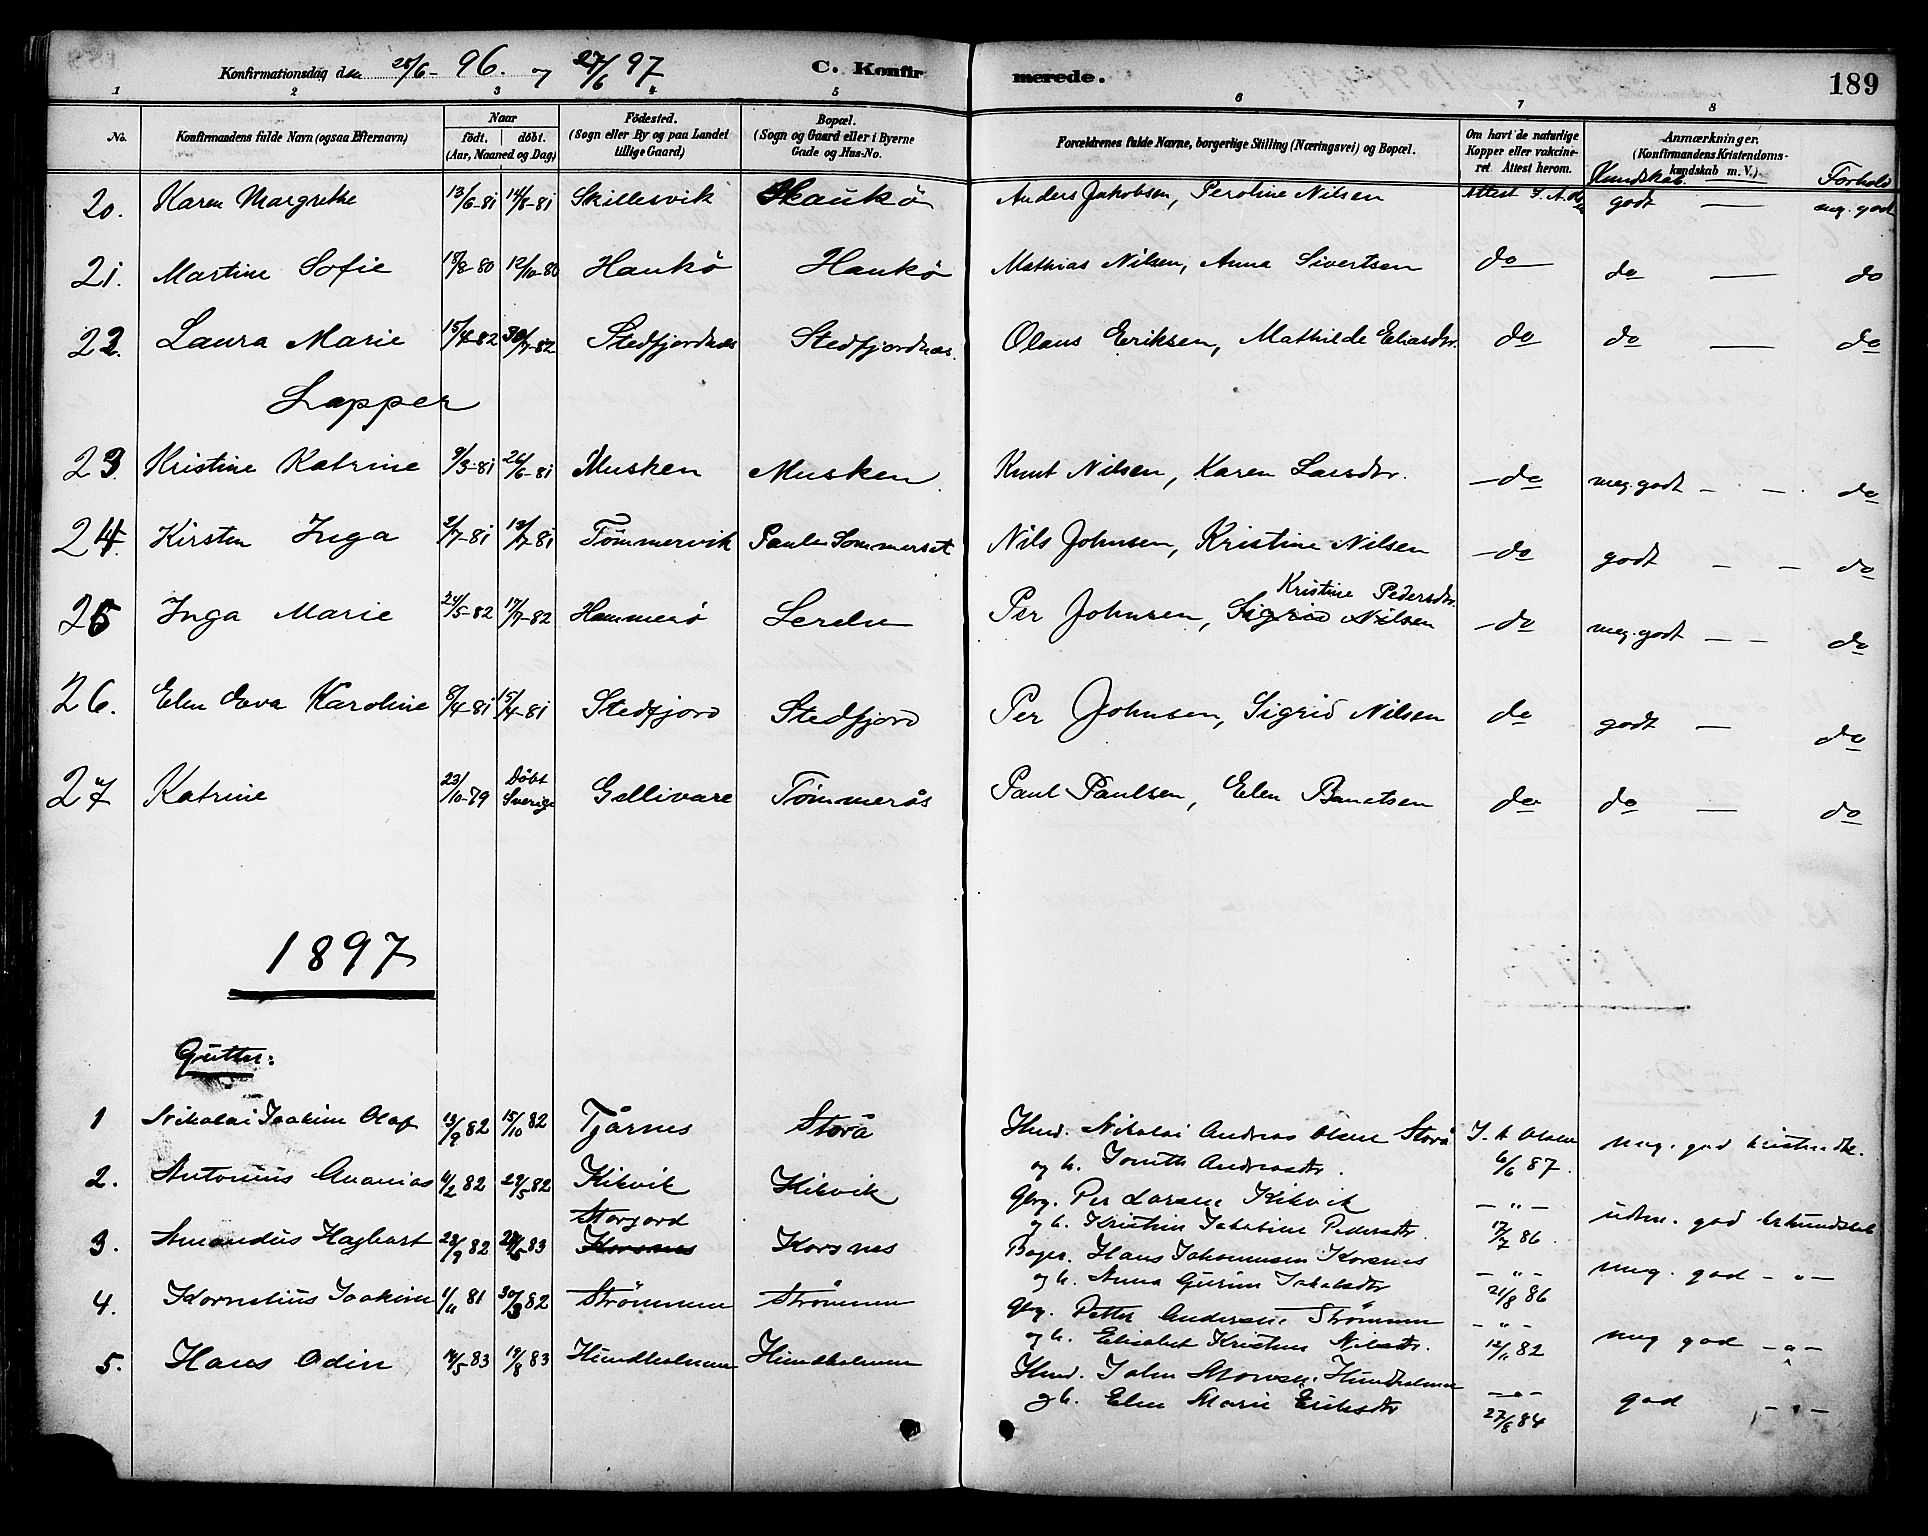 Konfirmationsdag den 28/6- 96. og 27/6 97 C. Konfirmerede. 189
1 2 3 4 5 6 7 8
No. Konfirmandens fulde Navn (ogsaa Efternavn) Naar født. døbt. (Aar, Maaned og Dag) Fødested. (Sogn eller By og paa Landet tillige Gaard) Bopæl. (Sogn og Gaard eller i Byerne Gade og Hus-No. Forældrenes fulde Navne, borgerlige Stilling (Næringsvei) og Bopæl. Om havt de naturlige Kopper eller vakcineret. Attest herom. Anmærkninger. (Konfirmandens Kristendomskundskab m. V.) Kundskab. Forhold
20. Karen Margrethe 13/6-81 14/8-81 Skillesvik Haukö Anders Jakobsen, Peroline Nilsen Attest godt — meg. godt
21. Martine Sofie 18/8-80 12/10-80 Haukö Haukö Mathias Nilsen, Anna Sivertsen do do — do
22. Laura Marie 15/4-82 30/7-82 Stedfjordnæs Stedfjordnæs. Olaus Eriksen, Mathilde Eliasdtr. do do — do
Lapper
23. Kristine Katrine 9/3-81 26/6-81 Musken Musken Knut Nilsen, Karen Larsdtr. do meg. godt — — do
24. Kirsten Inga 2/7-81 13/7-81 Tömmervik Sommerset Nils Johnsen, Kristine Nilsen do godt — — do
Kristine Pedersdtr.
25 Inga Marie 24/5-82 17/7-82 Hammerö Per Johnsen, Sigrid Nilsen do meg. godt — — do
26. Elen Eva Karoline 8/4-81 15/4-81 Stedfjord Stedfjord Per Johnsen, Sigrid Nilsen do godt — do
27 Katrine 23/10-79 Döbt Sverige Gellivare Tömmerås Paul Paulsen, Elen do do — do
1897
Gutter:
1 Nikolai Joakim Olaf 13/9 82 15/10 82 Tjårnes Storå Hmd. Nikolai Andreas Olsen Storå J. A Olsen meg. god kristendk.
og h. Andreasdtr. 6/6 87.
2. Antonius Ananias 11/2 82 29/5 82 Kikvik Kikvik Gbrg. Per Larsen Kikvik — " — udm. god
Storjord og h. Kristine Jakobine Pedersdtr. 17/7 86.
3. Amandus Hagbart 28/9 82 83 Korsnes Korsnes Hans Johannesen Korsnes — " — meg. god — " —
og h. Anna Gurine Jakobsdtr 21/8 86
4. Kornelius Joakim 1/11 81 30/3 82 Strömmen Strömmen Gbrg. Petter Andersen Strömmen — " — meg god — " —
og h. Elisabet Kristine Nilsdtr. 12/11 82
5. Hans Odin 14/5 83 19/8 83 Hundholmen Hundholmen Hmd. John Hundholmen — " — god — " —
og h. Elen Marie Eriksdtr 27/8 84